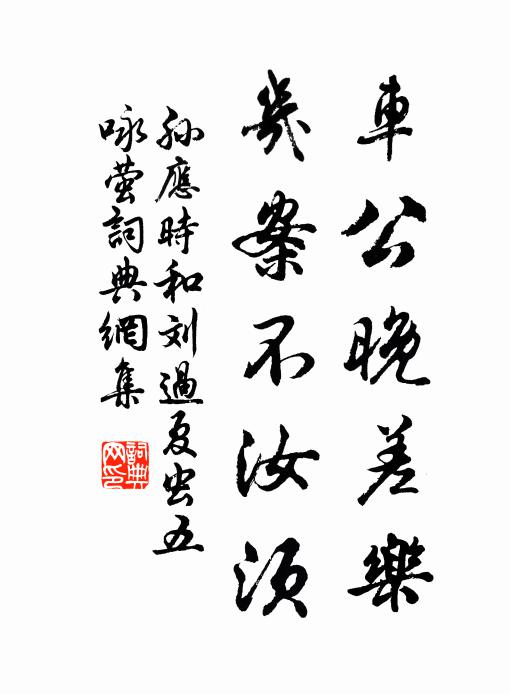 車公晚差樂
幾案不汝須
孙應時和刘過夏虫五
咏萤詞典網集
詞典网印